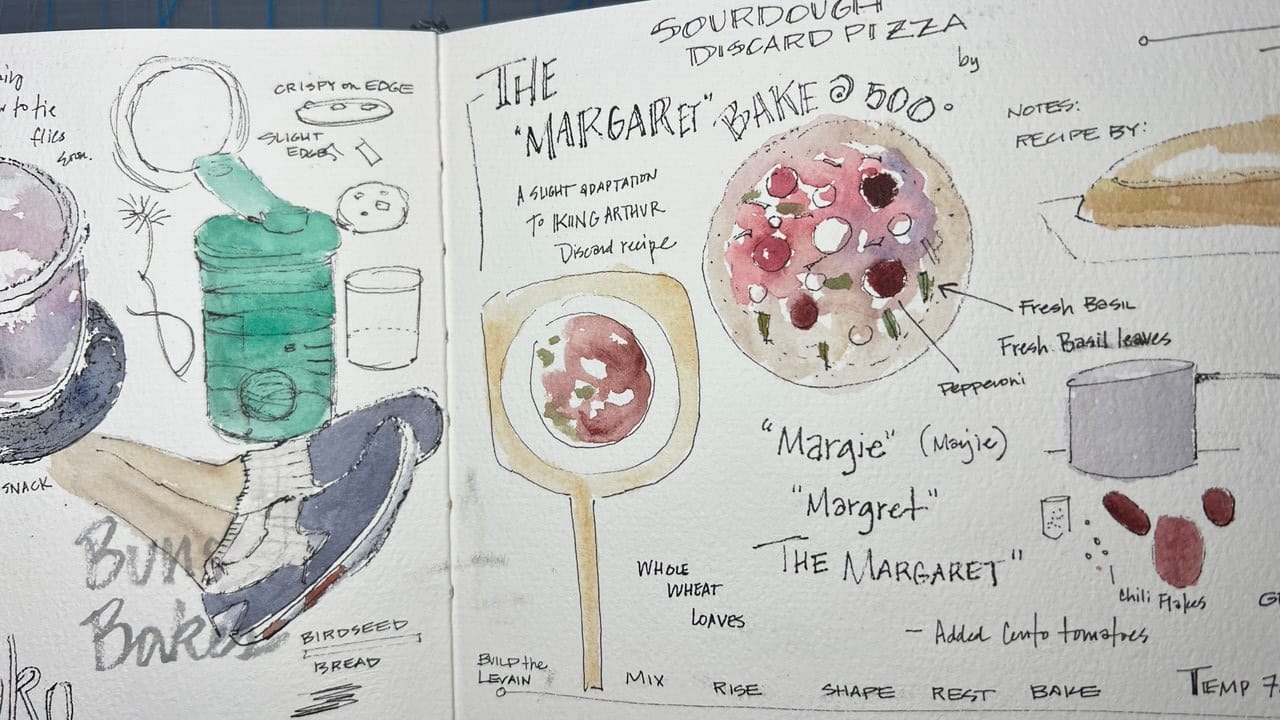 to tie
flies
SNACK
CRISPY on EDGE
SLIGHT
EDGE
Buns
Bake
BIRDSEED
BREAD
SOURDOUGH
DISCARD PIZZA
by
THE
"MARGARET"
BAKE @ 500°
A SLIGHT ADAPTATION
TO KIING ARTHUR
Discard recipe
NOTES:
RECIPE BY:
Fresh Basil
Fresh Basil leaves
Pepperoni
"Margie" (Marjie)
"Margret"
THE MARGARET"
Chili Flakes
- Added Cento tomatoes
WHOLE
WHEAT
LOAVES
BUILD the
LEVAIN
MIX
RISE
SHAPE
REST
BAKE
TEMP 7